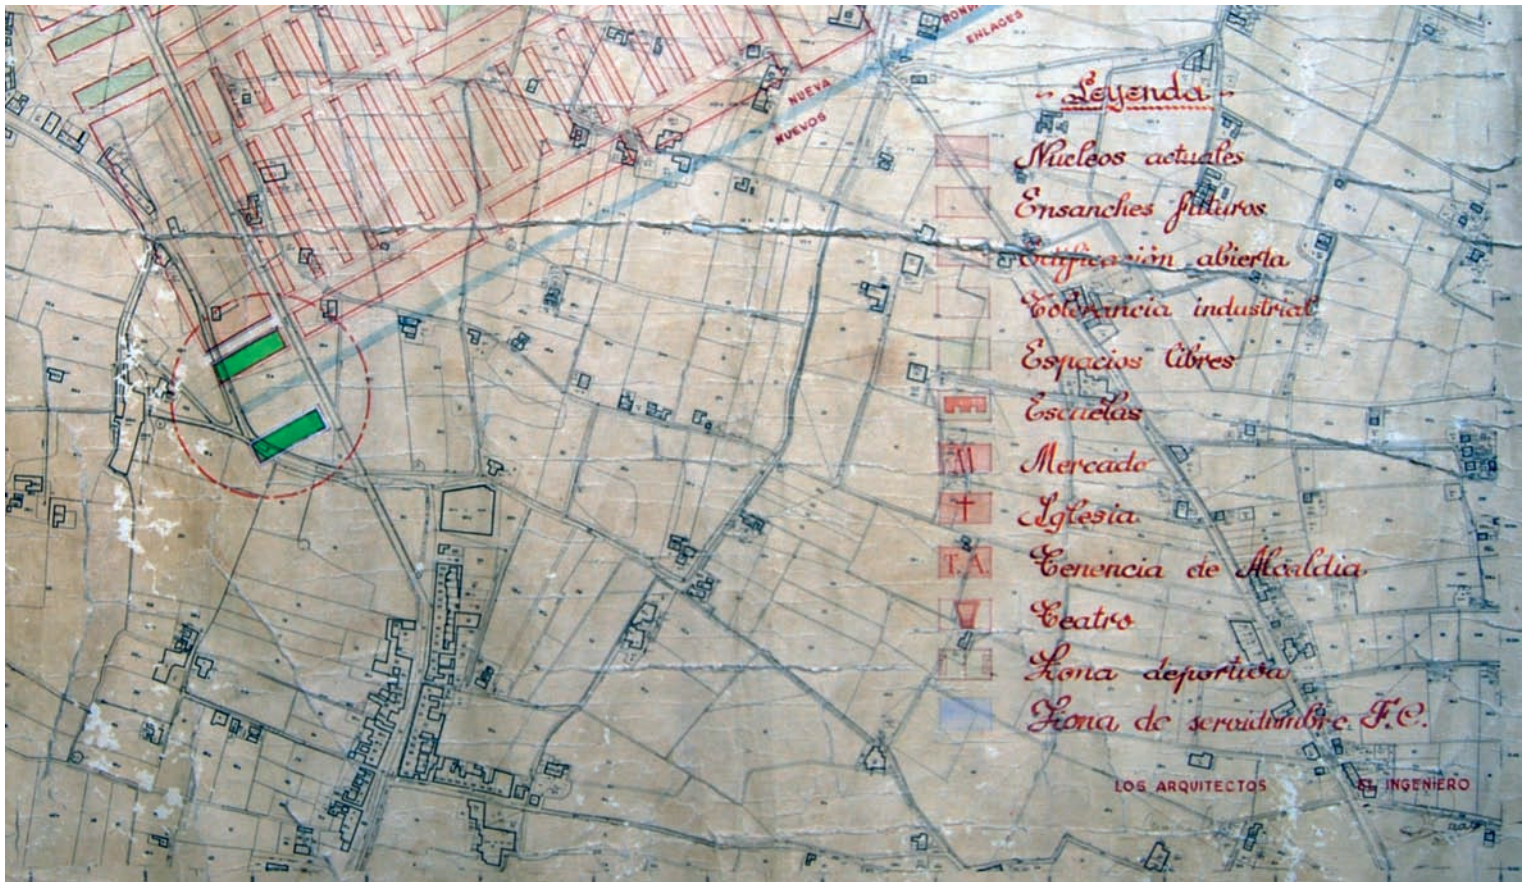 ENLACES
NUEVA
NUEVOS
Leyenda
Núcleos actuales
Ensanches futuros
Edificación abierta
Tolerancia industrial
Espacios libres
Escuelas
M Mercado
Iglesia
T.A. Tenencia de Alcaldia
Teatro
Zona deportiva
Zona de servidumbre F.C.
LOS ARQUITECTOS
EL INGENIERO